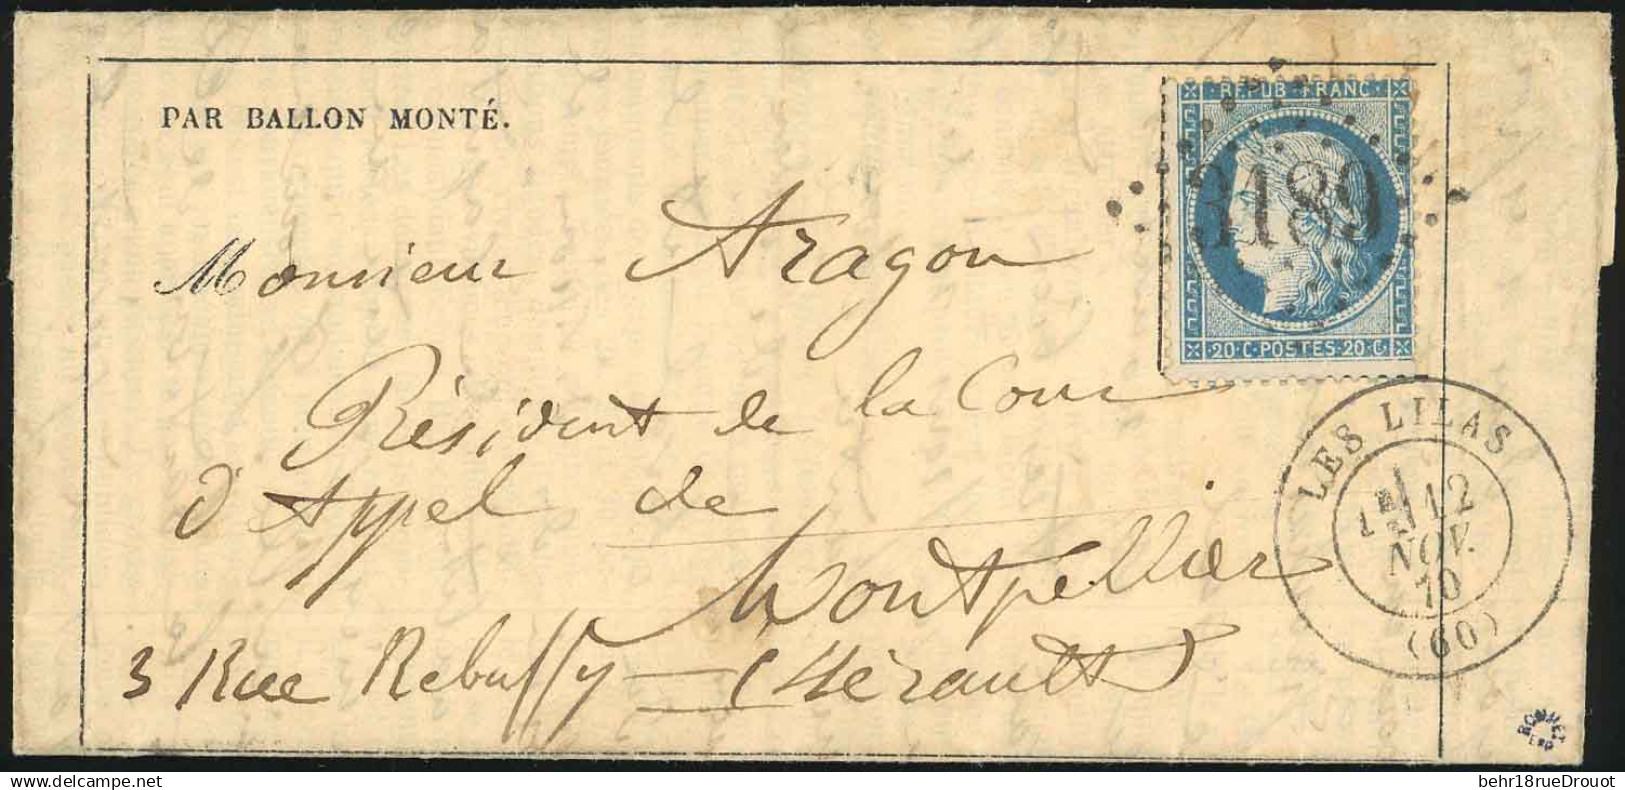 PAR BALLON MONTÉ.
REPUB. FRANC.
3189
20. C. POSTES. 20. C.
Monsieur Aragon
Président de la Cour
d'Appel de
Montpellier
3 Rue Rebuffy (Hérault)
LES LILAS
12
NOV.
70
(60)
behr18rueDrouot